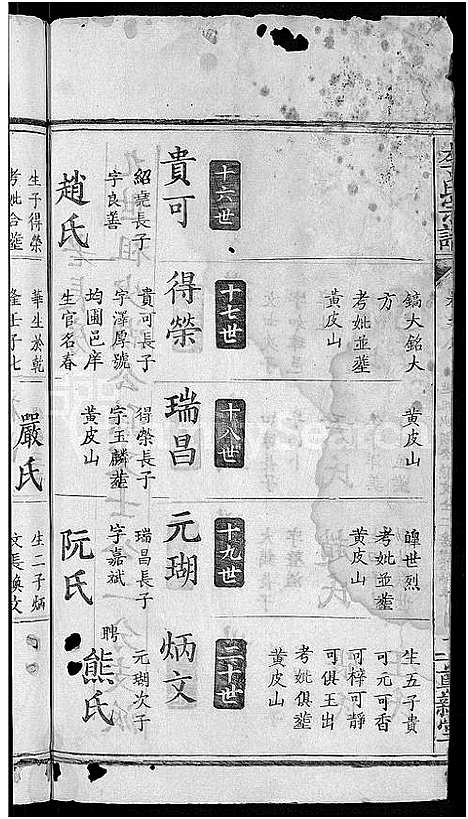 李氏宗譜
十六世
貴可
紹堯長子
字良善
趙氏
生子得榮
考妣合塟
鎬大銘大
方
考妣並塟
黃皮山
十七世
得榮
貴可長子
字澤厚號
均圃邑庠
生官名春
華生於乾
隆壬子七
黃皮山
十八世
瑞昌
得榮長子
字玉麟塟
黃皮山
嚴氏
世烈
考妣並塟
黃皮山
十九世
元瑚
瑞昌長子
字嘉斌
阮氏
生二子炳
文長煥文
生五子貴
可元可香
可梓可靜
可俱王出
考妣俱塟
黃皮山
二十世
炳文
元瑚次子
聘熊氏